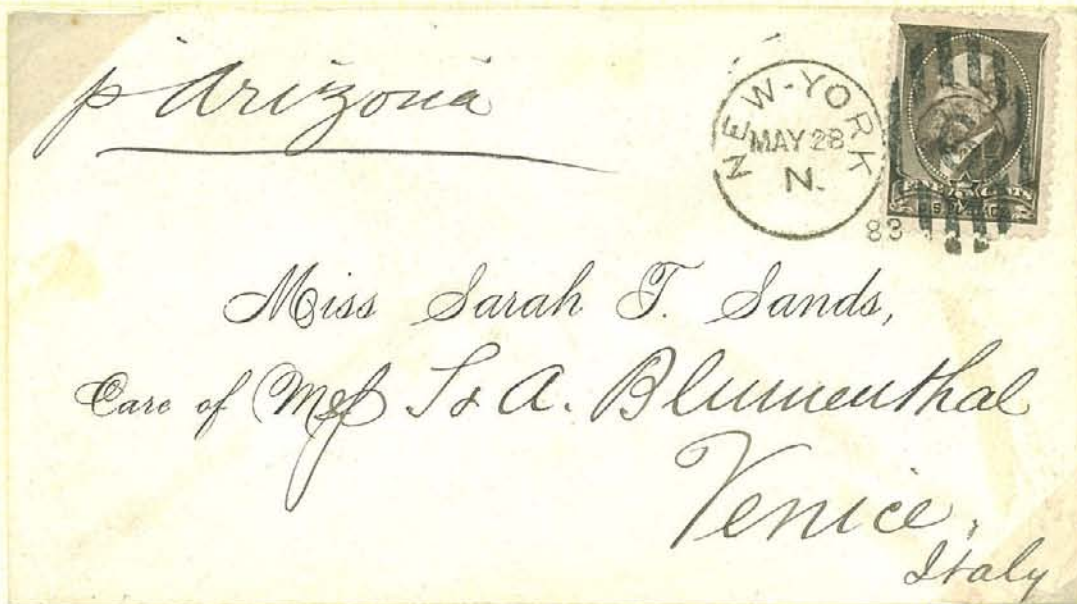 p Arizona
NEW-YORK
MAY 28
N.
83
Miss Sarah T. Sands,
Care of Mess S & A. Blumenthal
Venice,
Italy